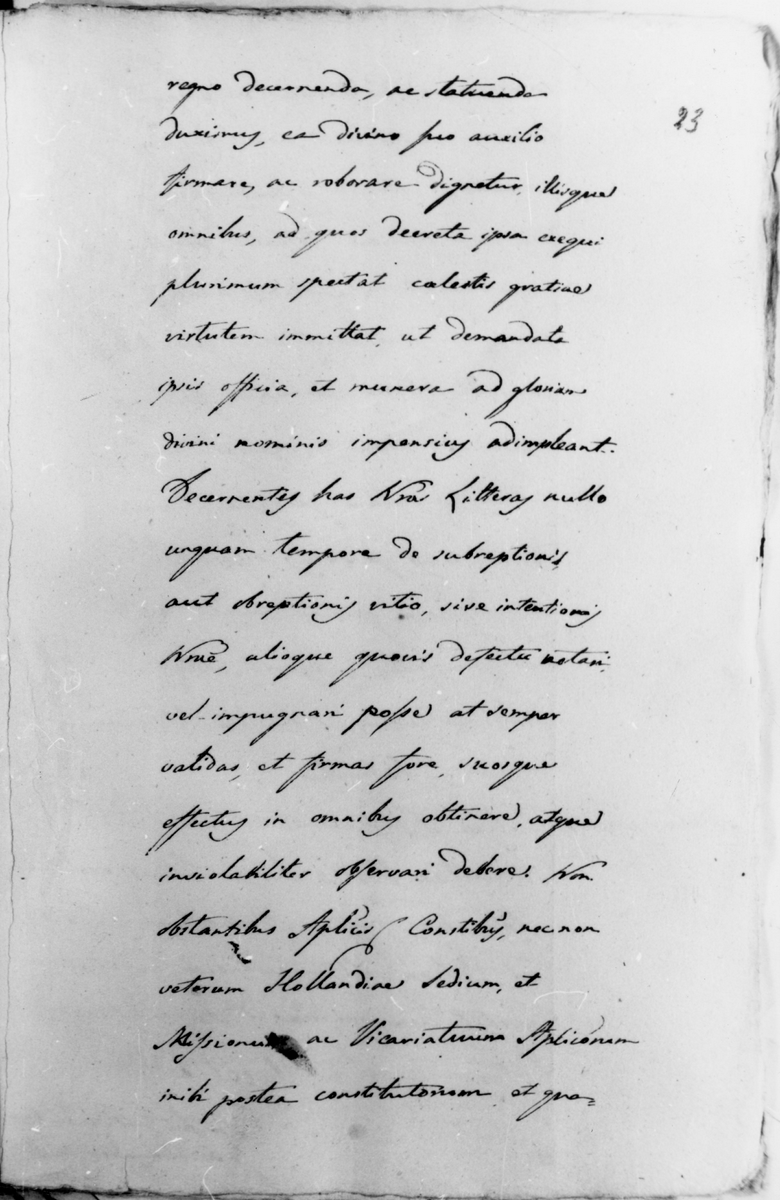 23
regno decernenda, ac statuenda
duximus, ea divino suo auxilio
firmare, ac roborare dignetur, illisque
omnibus, ad quos decreta ipsa exequi
plurimum spectat cœlestis gratiae
virtutem immittat, ut demandata
ipsis officia, et munera ad gloriam
divini nominis impensius adimpleant.
Decernentes has Nrãs Litteras nullo
unquam tempore de subreptionis,
aut obreptionis vitio, sive intentionis
Nrãe, alioque quovis defectu notari,
vel impugnari posse at semper
validas, et firmas fore, suosque
effectus in omnibus obtinere, atque
inviolabiliter observari debere. Non
obstantibus Aplicis Constibus, nec non
veterum Hollandiae Sedium, et
Missionum ac Vicariatuum Aplicorum
inibi postea constitutorum et qua=